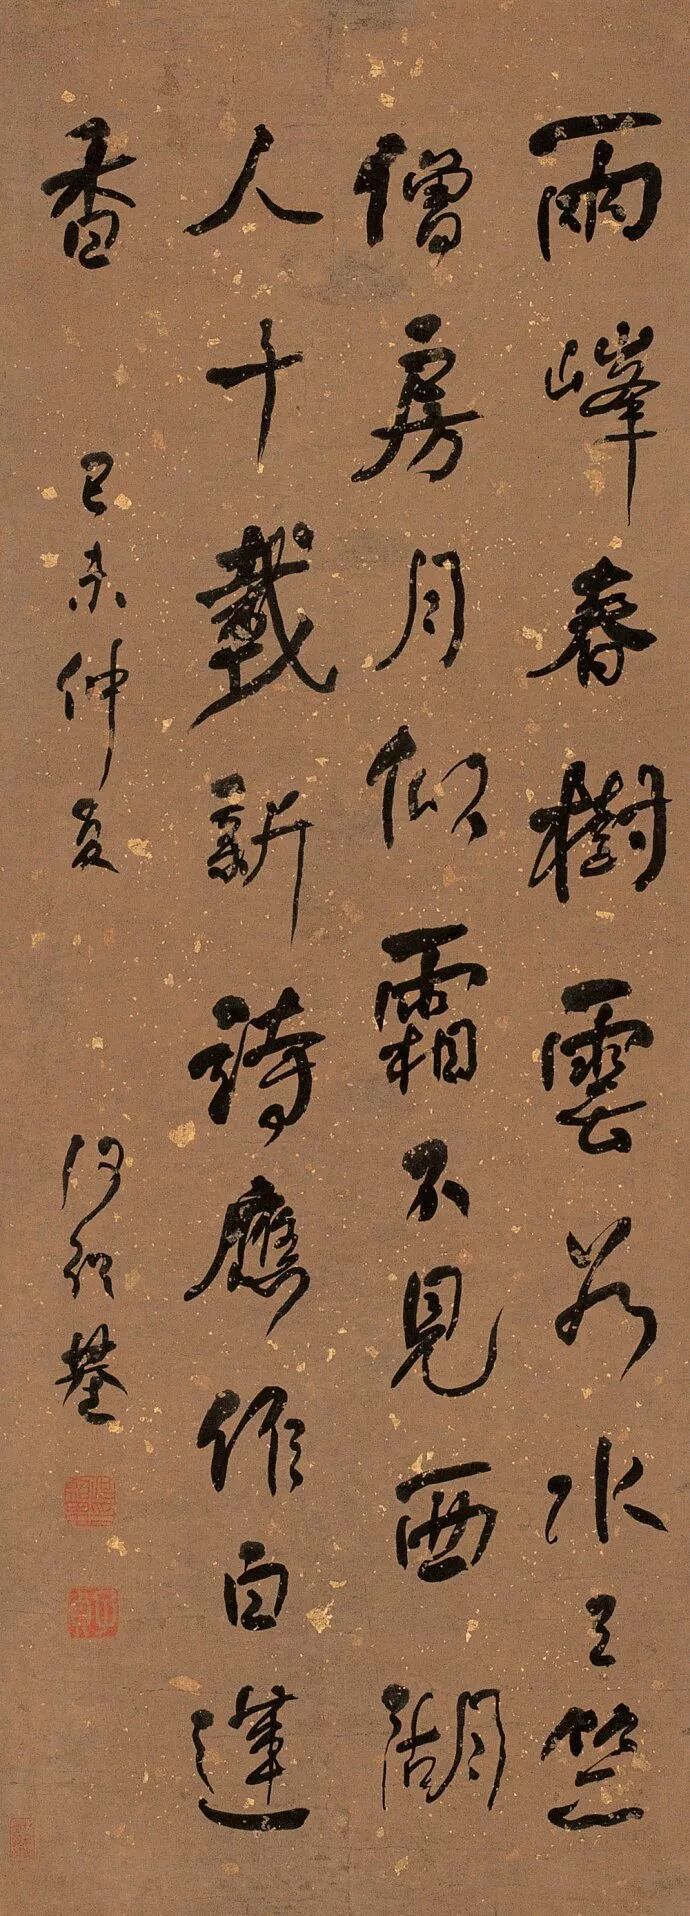 兩峰春樹雲如水天竺
僧房月似霜不見西湖
人十載新詩應作白蓮
香 己未仲夏 何紹基